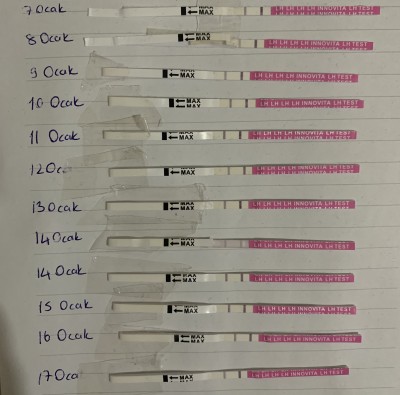 7 Ocak MAX LH LH LH LH INNOVITA LH TEST
8 Ocak MAX LH LH LH LH INNOVITA LH TEST
9 Ocak MAX LH LH LH LH INNOVITA LH TEST
10 Ocak MAX LH LH LH LH INNOVITA LH TEST
11 Ocak MAX LH LH LH LH INNOVITA LH TEST
12 Oc MAX LH LH LH LH INNOVITA LH TEST
13 Ocak MAX LH LH LH LH INNOVITA LH TEST
14 Ocak MAX LH LH LH LH INNOVITA LH TEST
14 Ocak MAX LH LH LH LH INNOVITA LH TEST
15 Ocak MAX LH LH LH LH INNOVITA LH TEST
16 Ocak MAX LH LH LH LH INNOVITA LH TEST
17 Oca MAX LH LH LH LH INNOVITA LH TEST